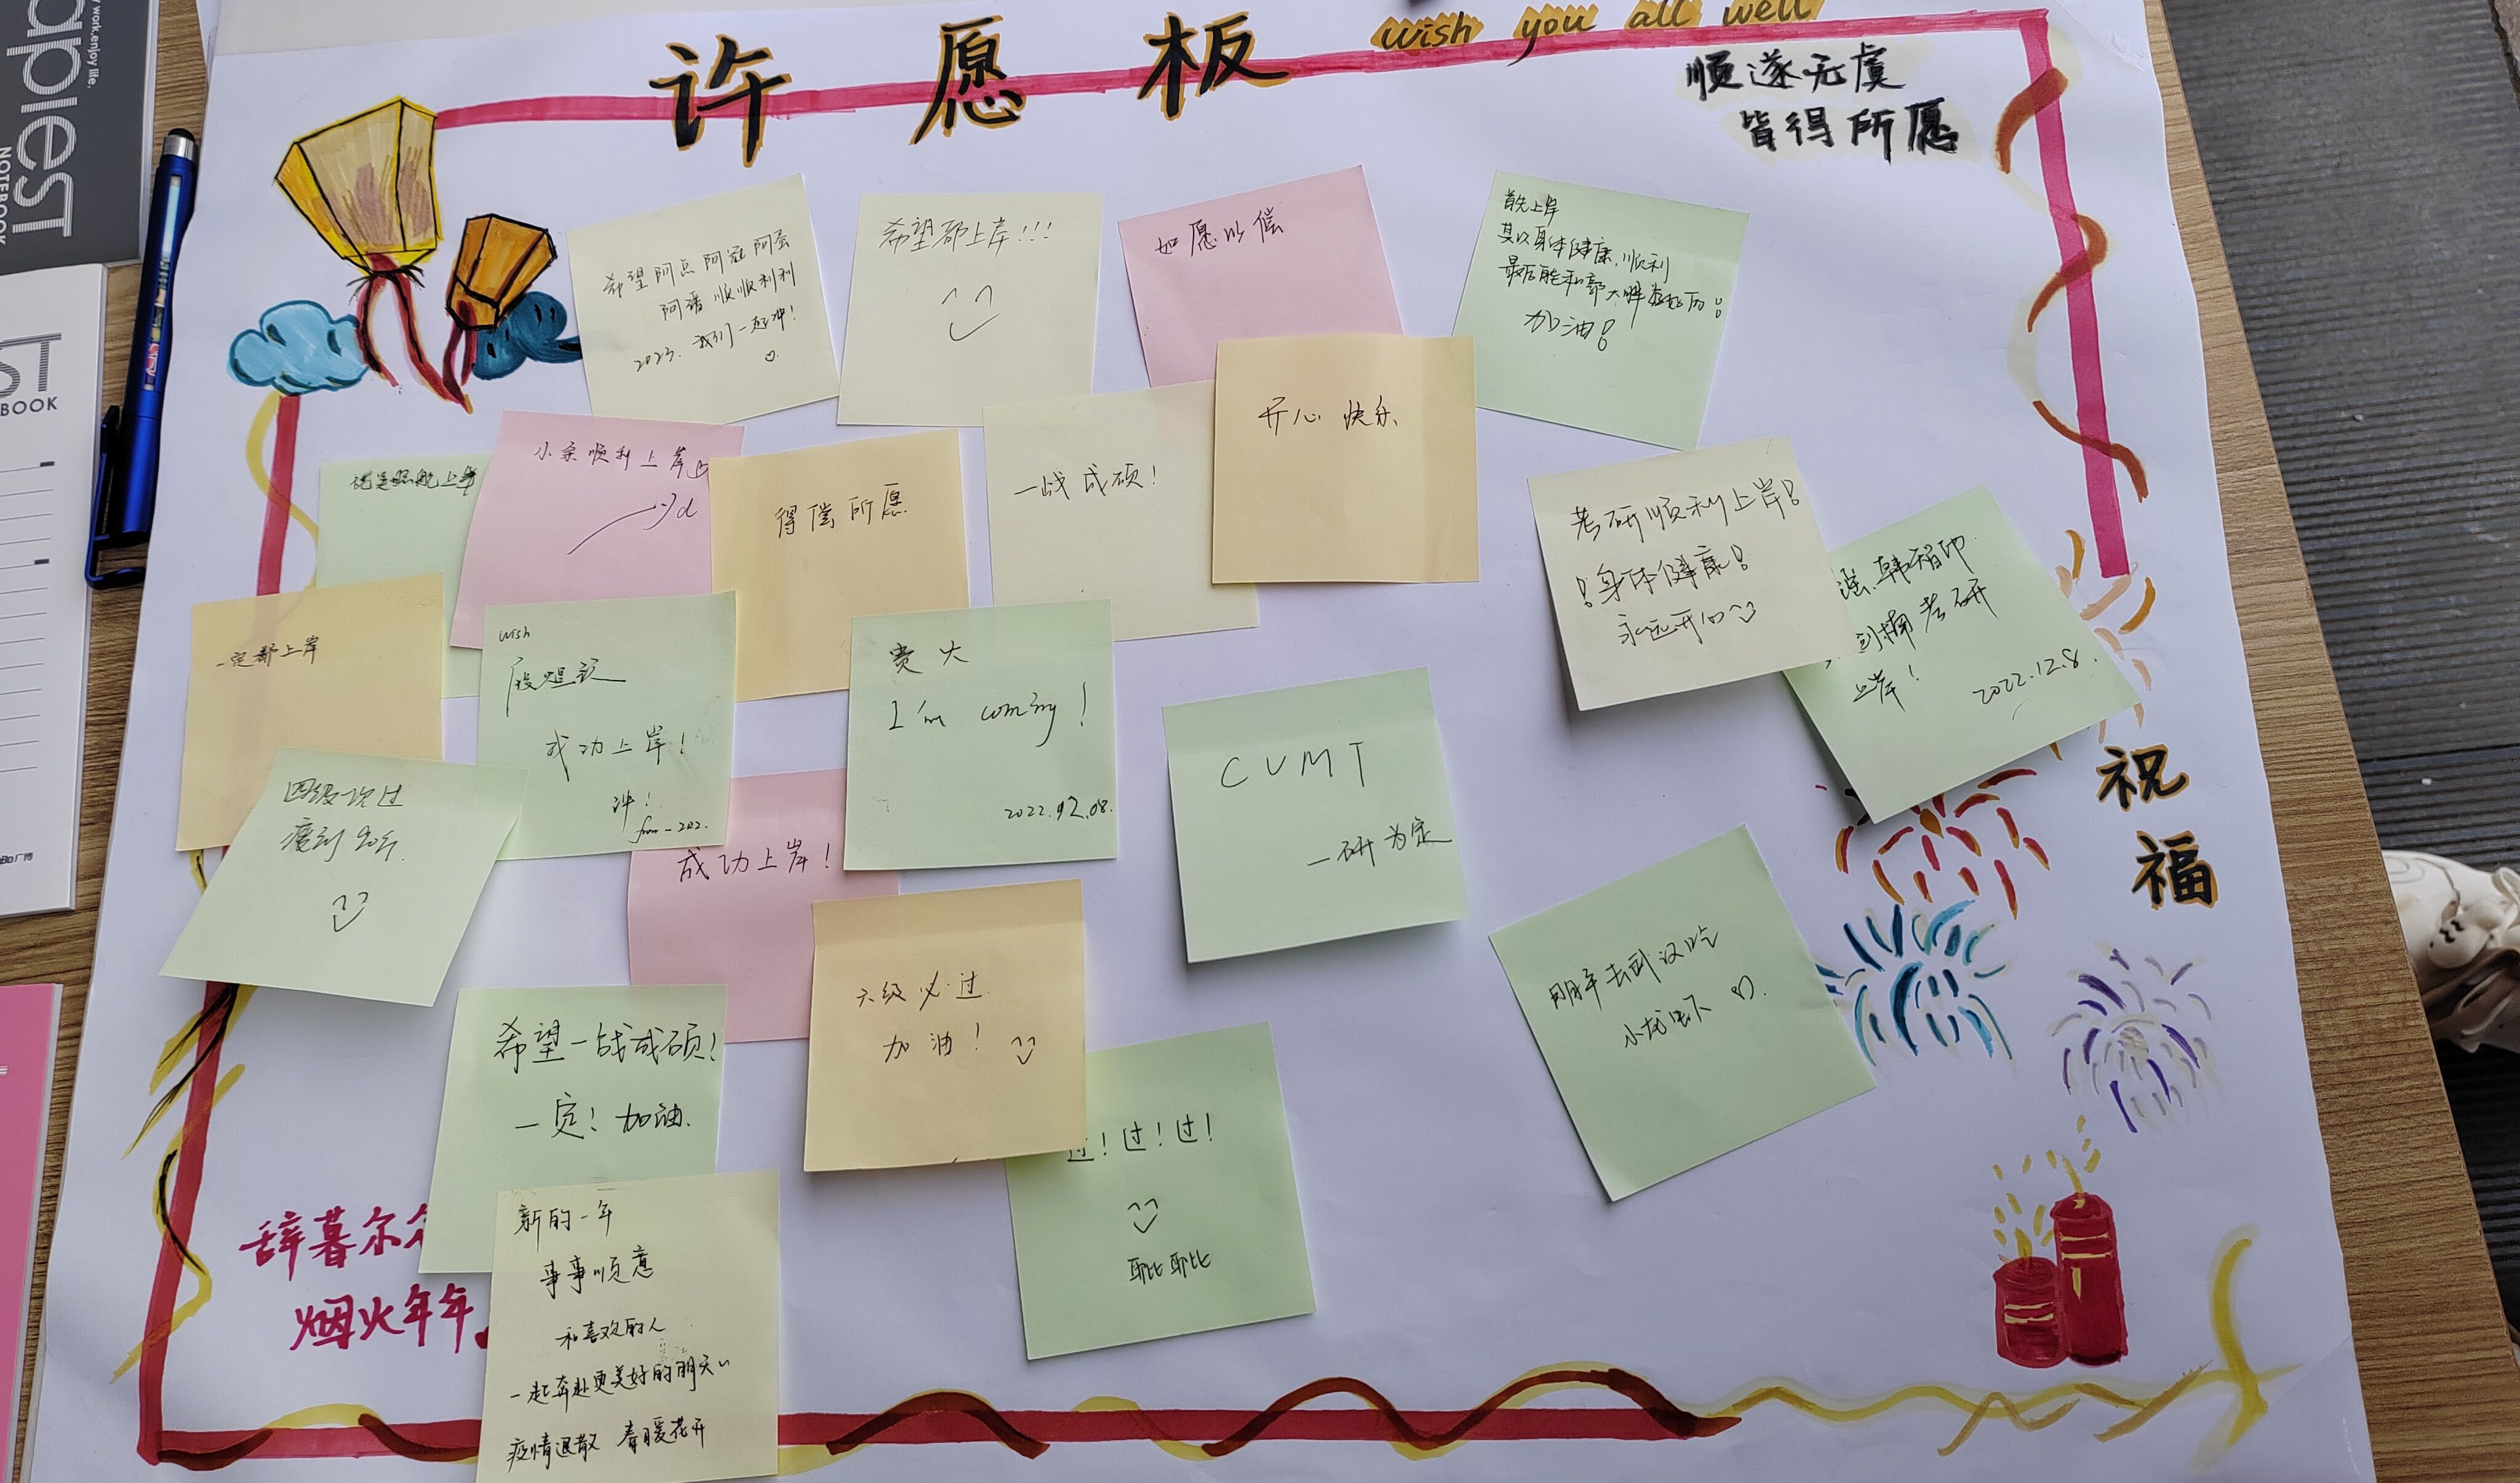 work,enjoy life.
apiest
NOTEBOOK
ST
BOOK
广博
许愿板
wish you all well
顺遂无虞
皆得所愿
希望阿点 阿冠 阿蛋
阿潘 顺顺利利
2023. 我们一起冲!
希望都上岸!!!
如愿以偿
首先上岸
其以身体健康,顺利
最后能和郭大胖
加油!
开心 快乐
上岸
小余顺利上岸
得偿所愿
一战成硕!
考研顺利上岸!
!身体健康!
永远开心
韩智印
考研
上岸!
2022.12.8.
一定都上岸
wish
成功上岸!
冲!
from-202.
贵大
I'm coming!
2022.12.08.
CUMT
一研为定
四级一次过
瘦到90斤.
成功上岸!
六级必过.
加油!
明年去武汉吃
小龙虾
希望一战成硕!
一定!加油.
过!过!过!
耶比耶比
新的一年
事事顺意
和喜欢的人
一起奔赴更美好的明天
疫情退散 春暖花开
辞暮尔尔
烟火年年.
祝福